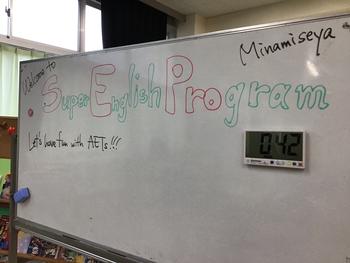 Welcome to
Minamiseya
Super English Program
Let's have fun with AETs!!!
0:42